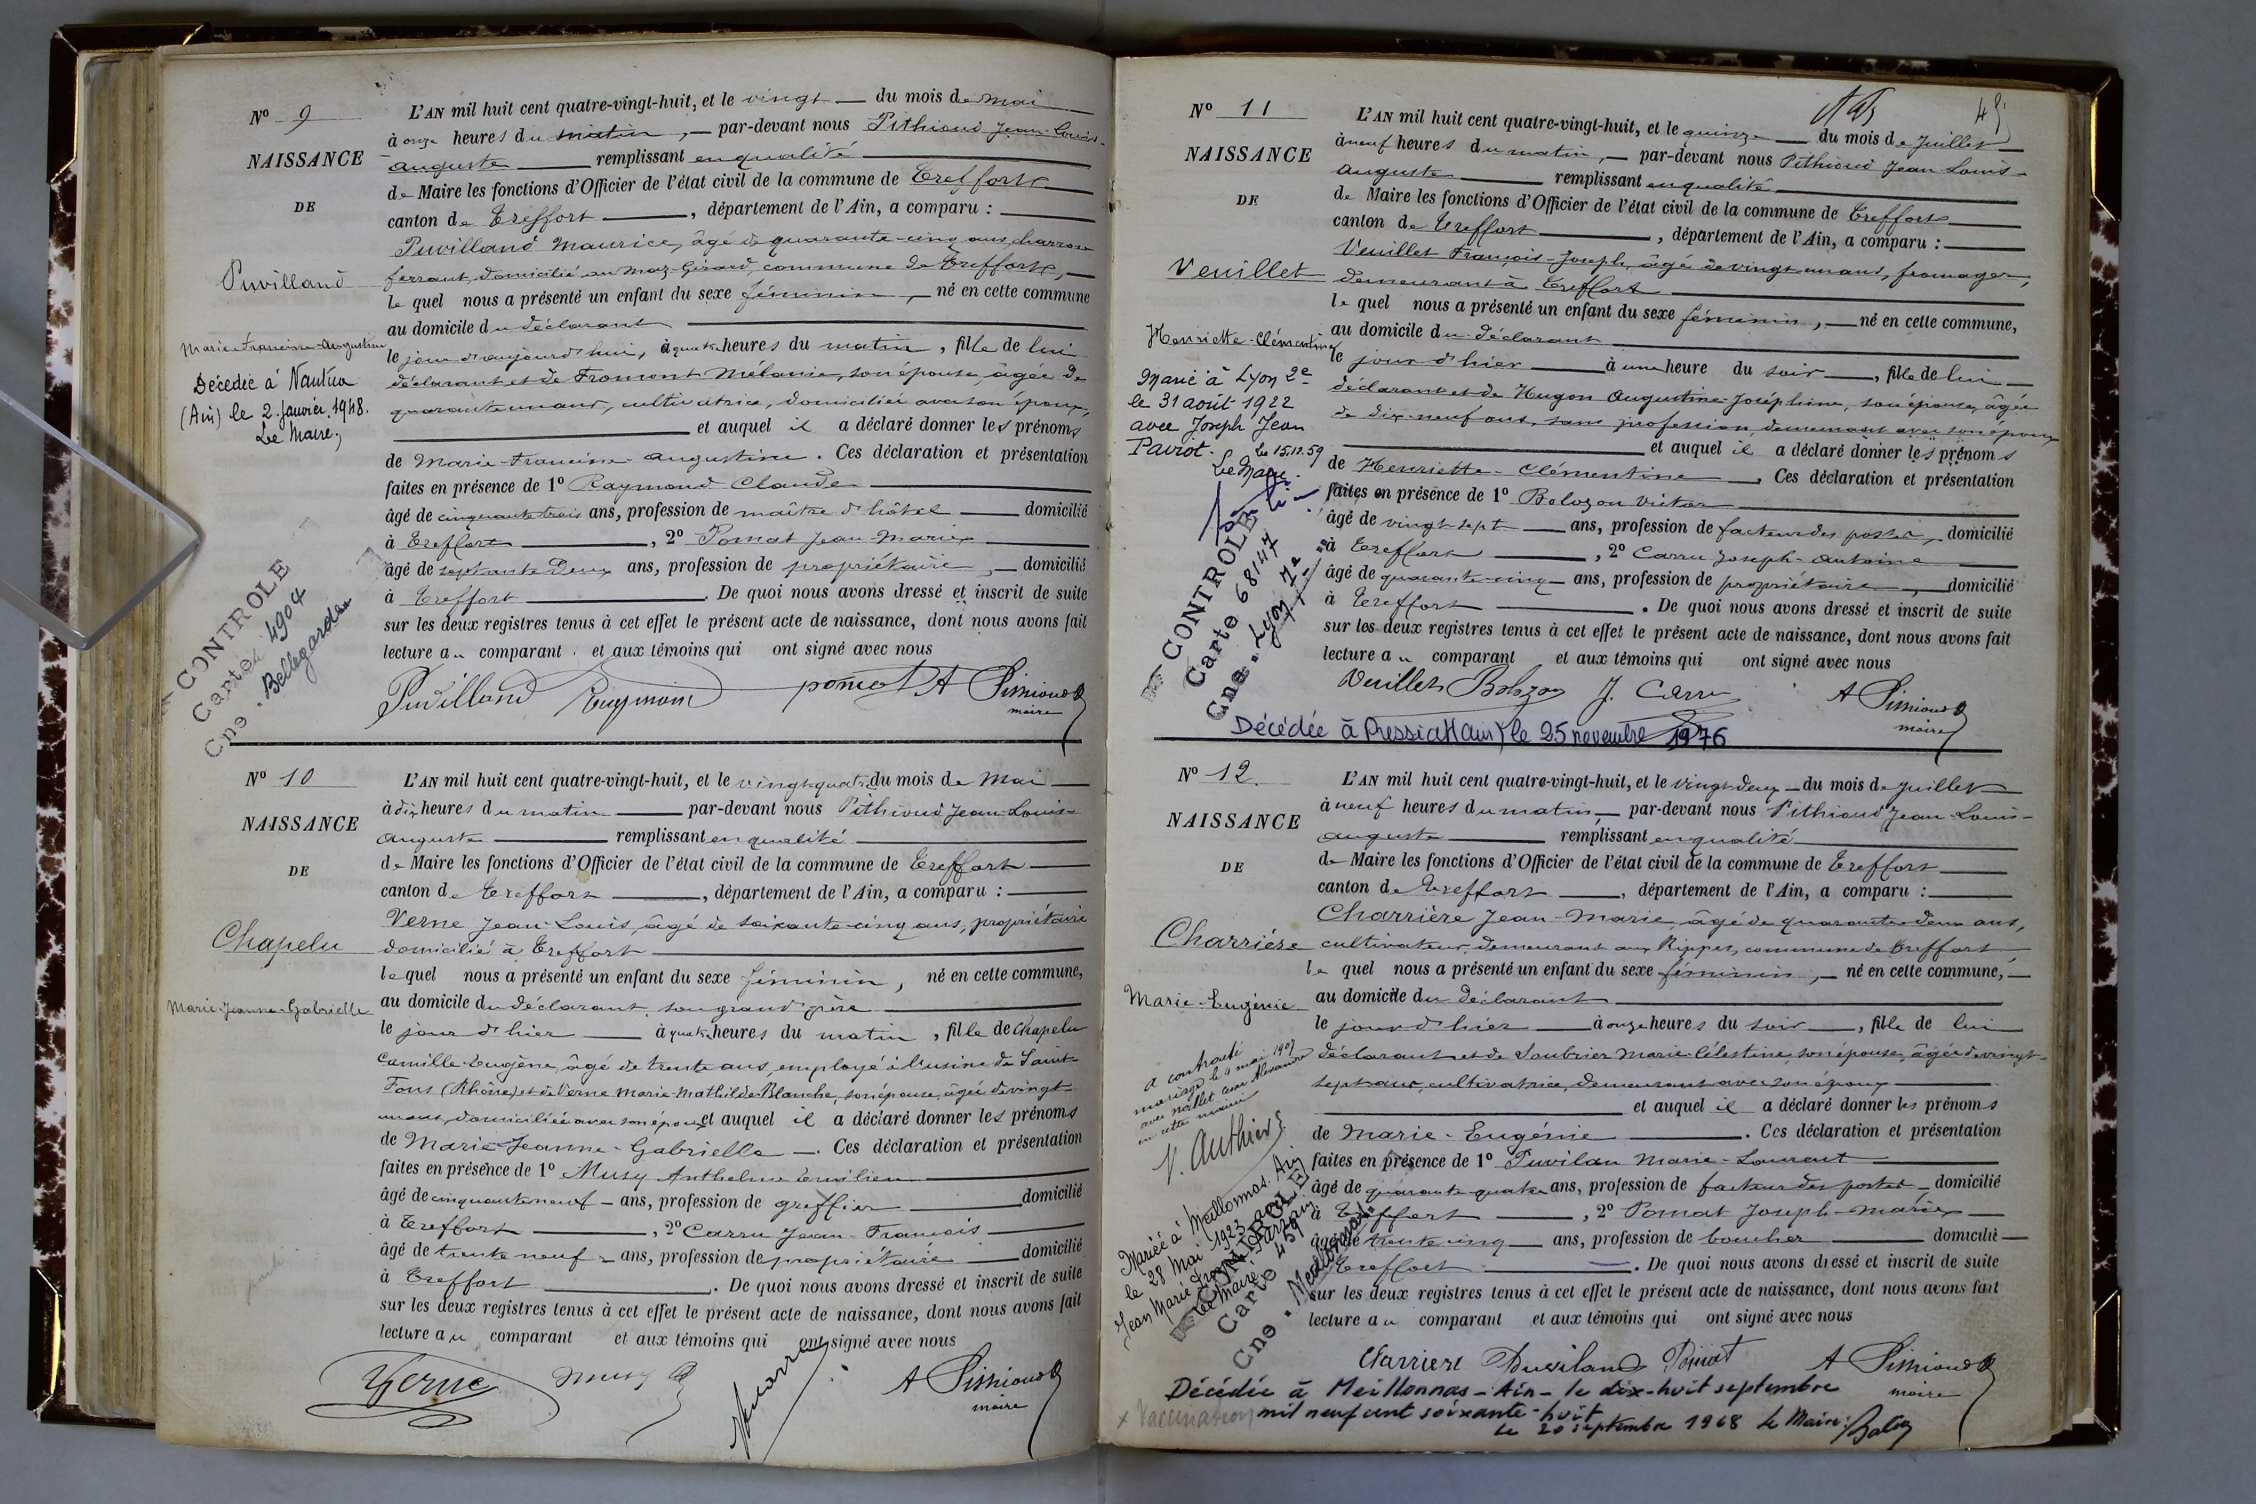 Nº 9
NAISSANCE
DE
Puvilland
Marie-Francine-Augustine
Décédée à Nantua
(Ain) le 2 Janvier 1948.
Le Maire,
CONTROLE
Carte 4904
Cne. Bellegarde
L'AN mil huit cent quatre-vingt-huit, et le vingt du mois de Mai
à onze heures du matin, par-devant nous Pithioud Jean-Louis-
Auguste remplissant en qualité
de Maire les fonctions d'Officier de l'état civil de la commune de Treffort
canton de Treffort, département de l'Ain, a comparu :
Puvilland Maurice, âgé de quarante-cinq ans, charron
ferrant, domicilié au Maz-Girard, commune de Treffort,
lequel nous a présenté un enfant du sexe féminin, né en cette commune
au domicile du déclarant
le jour d'aujourd'hui, à quatre heures du matin, fille de lui
déclarant et de Fromont Mélanie, son épouse, âgée de
quarante un ans, cultivatrice, domiciliée avec son époux,
et auquel il a déclaré donner les prénoms
de Marie-Francine-Augustine. Ces déclaration et présentation
faites en présence de 1º Raymond Claude
âgé de cinquante trois ans, profession de maître d'hôtel domicilié
à Treffort, 2º Pomat Jean-Marie
âgé de septante deux ans, profession de propriétaire, domicilié
à Treffort. De quoi nous avons dressé et inscrit de suite
sur les deux registres tenus à cet effet le présent acte de naissance, dont nous avons fait
lecture au comparant et aux témoins qui ont signé avec nous
Puvilland Raymond pomat A Pithioud
maire
Nº 10
NAISSANCE
DE
Chapelu
Marie-Jeanne-Gabrielle
L'AN mil huit cent quatre-vingt-huit, et le vingt-quatre du mois de Mai
à dix heures du matin par-devant nous Pithioud Jean-Louis-
Auguste remplissant en qualité
de Maire les fonctions d'Officier de l'état civil de la commune de Treffort
canton de Treffort, département de l'Ain, a comparu :
Verne Jean-Louis, âgé de soixante-cinq ans, propriétaire
domicilié à Treffort
lequel nous a présenté un enfant du sexe féminin, né en cette commune,
au domicile du déclarant, son grand père
le jour d'hier à quatre heures du matin, fille de Chapelu
Camille-Eugène, âgé de trente ans, employé à l'usine de Saint-
Fons (Rhône) et de Verne Marie-Mathilde-Blanche, son épouse, âgée de vingt-
un ans, domiciliée avec son époux et auquel il a déclaré donner les prénoms
de Marie-Jeanne-Gabrielle. Ces déclaration et présentation
faites en présence de 1º Musy Anthelme Émilien
âgé de cinquante neuf ans, profession de greffier domicilié
à Treffort, 2º Carru Jean-François
âgé de trente neuf ans, profession de propriétaire domicilié
à Treffort. De quoi nous avons dressé et inscrit de suite
sur les deux registres tenus à cet effet le présent acte de naissance, dont nous avons fait
lecture au comparant et aux témoins qui ont signé avec nous
Verne Musy A Pithioud
maire
Nº 11
NAISSANCE
DE
Veuillet
Henriette-Clémentine
Marié à Lyon 2e
le 31 août 1922
avec Joseph Jean
Paviot. Le 15.12.59
Le Maire.
CONTROLE
Carte 68147
Cne. Lyon 7e
L'AN mil huit cent quatre-vingt-huit, et le quinze du mois de Juillet
à neuf heures du matin, par-devant nous Pithioud Jean-Louis-
Auguste remplissant en qualité
de Maire les fonctions d'Officier de l'état civil de la commune de Treffort
canton de Treffort, département de l'Ain, a comparu :
Veuillet François-Joseph, âgé de vingt un ans, fromager,
demeurant à Treffort
lequel nous a présenté un enfant du sexe féminin, né en cette commune,
au domicile du déclarant
le jour d'hier à une heure du soir, fille de lui
déclarant et de Hugon Augustine-Joséphine, son épouse, âgée
de dix-neuf ans, sans profession demeurant avec son époux
et auquel il a déclaré donner les prénoms
de Henriette-Clémentine. Ces déclaration et présentation
faites en présence de 1º Bolozon Victor
âgé de vingt-sept ans, profession de facteur des postes, domicilié
à Treffort, 2º Carru Joseph-Antoine
âgé de quarante-cinq ans, profession de propriétaire, domicilié
à Treffort. De quoi nous avons dressé et inscrit de suite
sur les deux registres tenus à cet effet le présent acte de naissance, dont nous avons fait
lecture au comparant et aux témoins qui ont signé avec nous
Veuillet Bolozon J. Carru A Pithioud
maire
Décédée à Pressiat (Ain) le 25 novembre 1976
Nº 12
NAISSANCE
DE
Charrière
Marie-Eugénie
a contracté
mariage le 4 mai 1907
avec
en cette mairie
V. Authier
Mariée à Meillonnas. Ain
le 28 Mai 1923 avec
Jean Marie
Le Maire
CONTROLE
Carte 450
Cne. Meillonnas
L'AN mil huit cent quatre-vingt-huit, et le vingt-deux du mois de Juillet
à neuf heures du matin, par-devant nous Pithioud Jean-Louis-
Auguste remplissant en qualité
de Maire les fonctions d'Officier de l'état civil de la commune de Treffort
canton de Treffort, département de l'Ain, a comparu :
Charrière Jean-Marie, âgé de quarante-deux ans,
cultivateur, demeurant aux Rippes, commune de Treffort
lequel nous a présenté un enfant du sexe féminin, né en cette commune,
au domicile du déclarant
le jour d'hier à onze heures du soir, fille de lui
déclarant et de Soubrier Marie-Célestine, son épouse, âgée de vingt-
sept ans, cultivatrice, demeurant avec son époux
et auquel il a déclaré donner les prénoms
de Marie-Eugénie. Ces déclaration et présentation
faites en présence de 1º Puvilan Marie-Laurent
âgé de quarante-quatre ans, profession de facteur des postes domicilié
à Treffort, 2º Pomat Joseph-Marie
âgé de trente cinq ans, profession de boucher domicilié
à Treffort. De quoi nous avons dressé et inscrit de suite
sur les deux registres tenus à cet effet le présent acte de naissance, dont nous avons fait
lecture au comparant et aux témoins qui ont signé avec nous
Charriere Puviland Pomat A Pithioud
maire
Décédée à Meillonnas - Ain - le dix-huit septembre
mil neuf cent soixante-huit
Le 20 septembre 1968 Le Maire:
x Vaccination